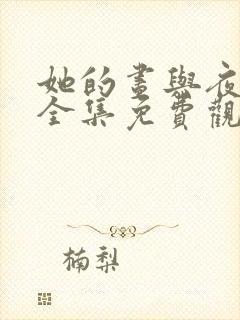 她的畫與夜
全集免費觀
楠梨